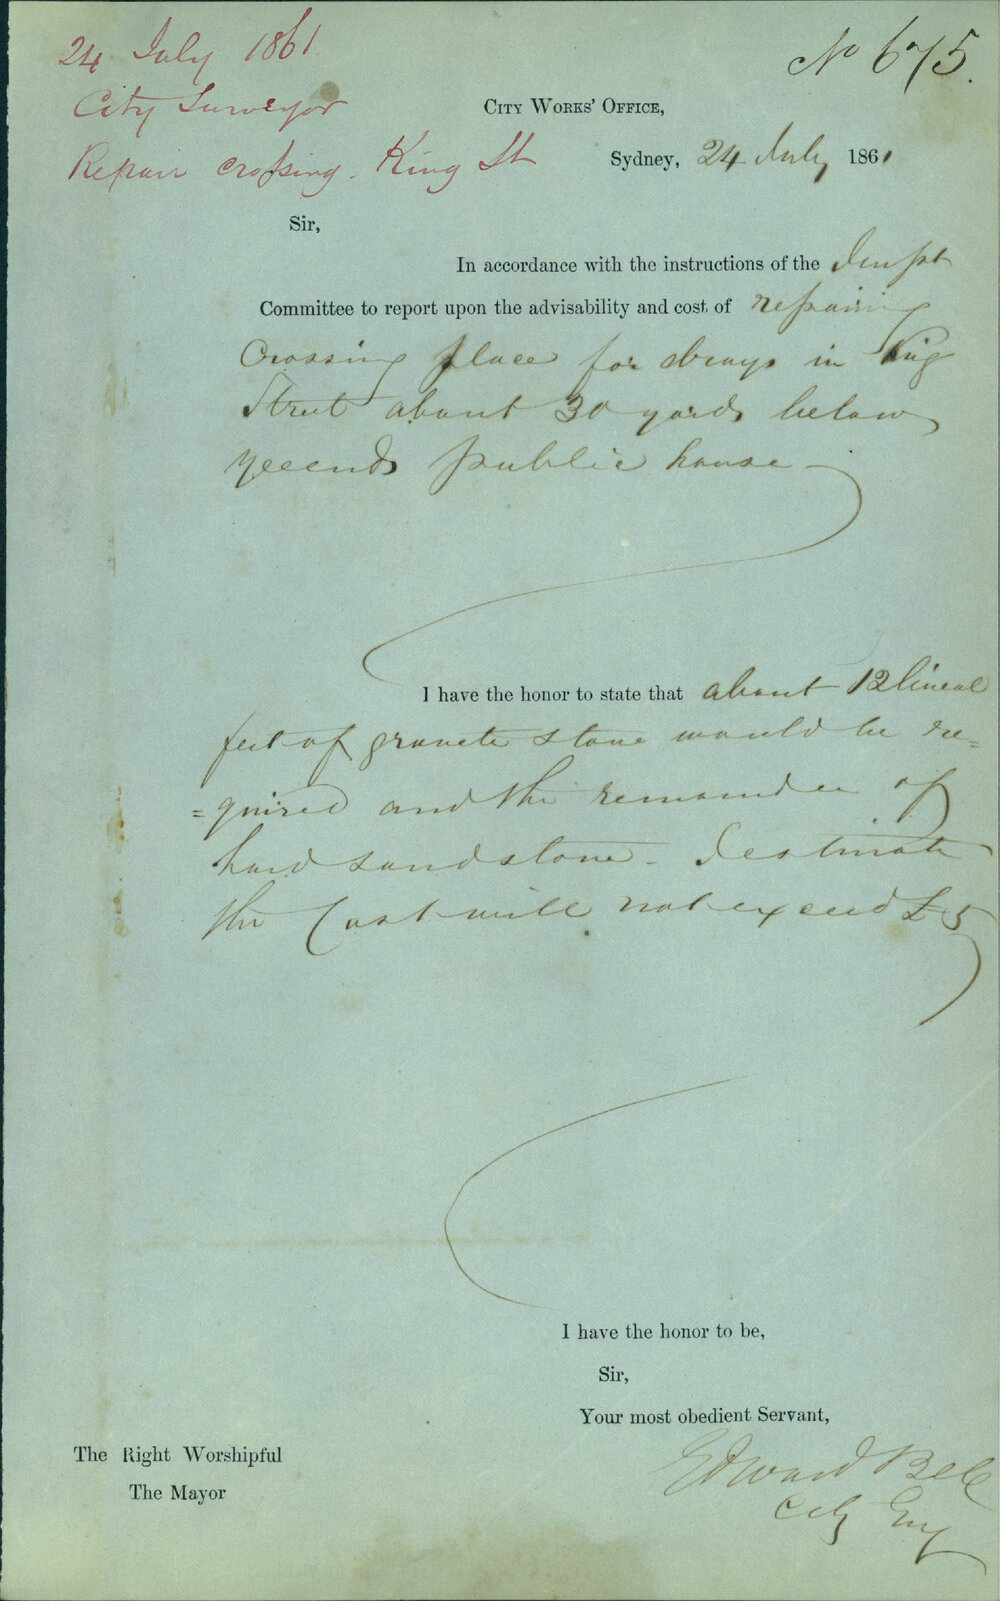 24 July 1861
City Surveyor
Repair crossing. King St
No 675.
City Works' Office,
Sydney, 24 July 1861
Sir,
In accordance with the instructions of the
Committee to report upon the advisability and cost of repairing
Crossing place for drays in King
Street about 30 yards below
public house
I have the honor to state that about 12 lineal
feet of granete stone would be re=
=quired and the remainder of
hard sandstone - I estimate
the Cost will not exceed £5
I have the honor to be,
Sir,
Your most obedient Servant,
The Right Worshipful
The Mayor
Edward Bell
City Eng